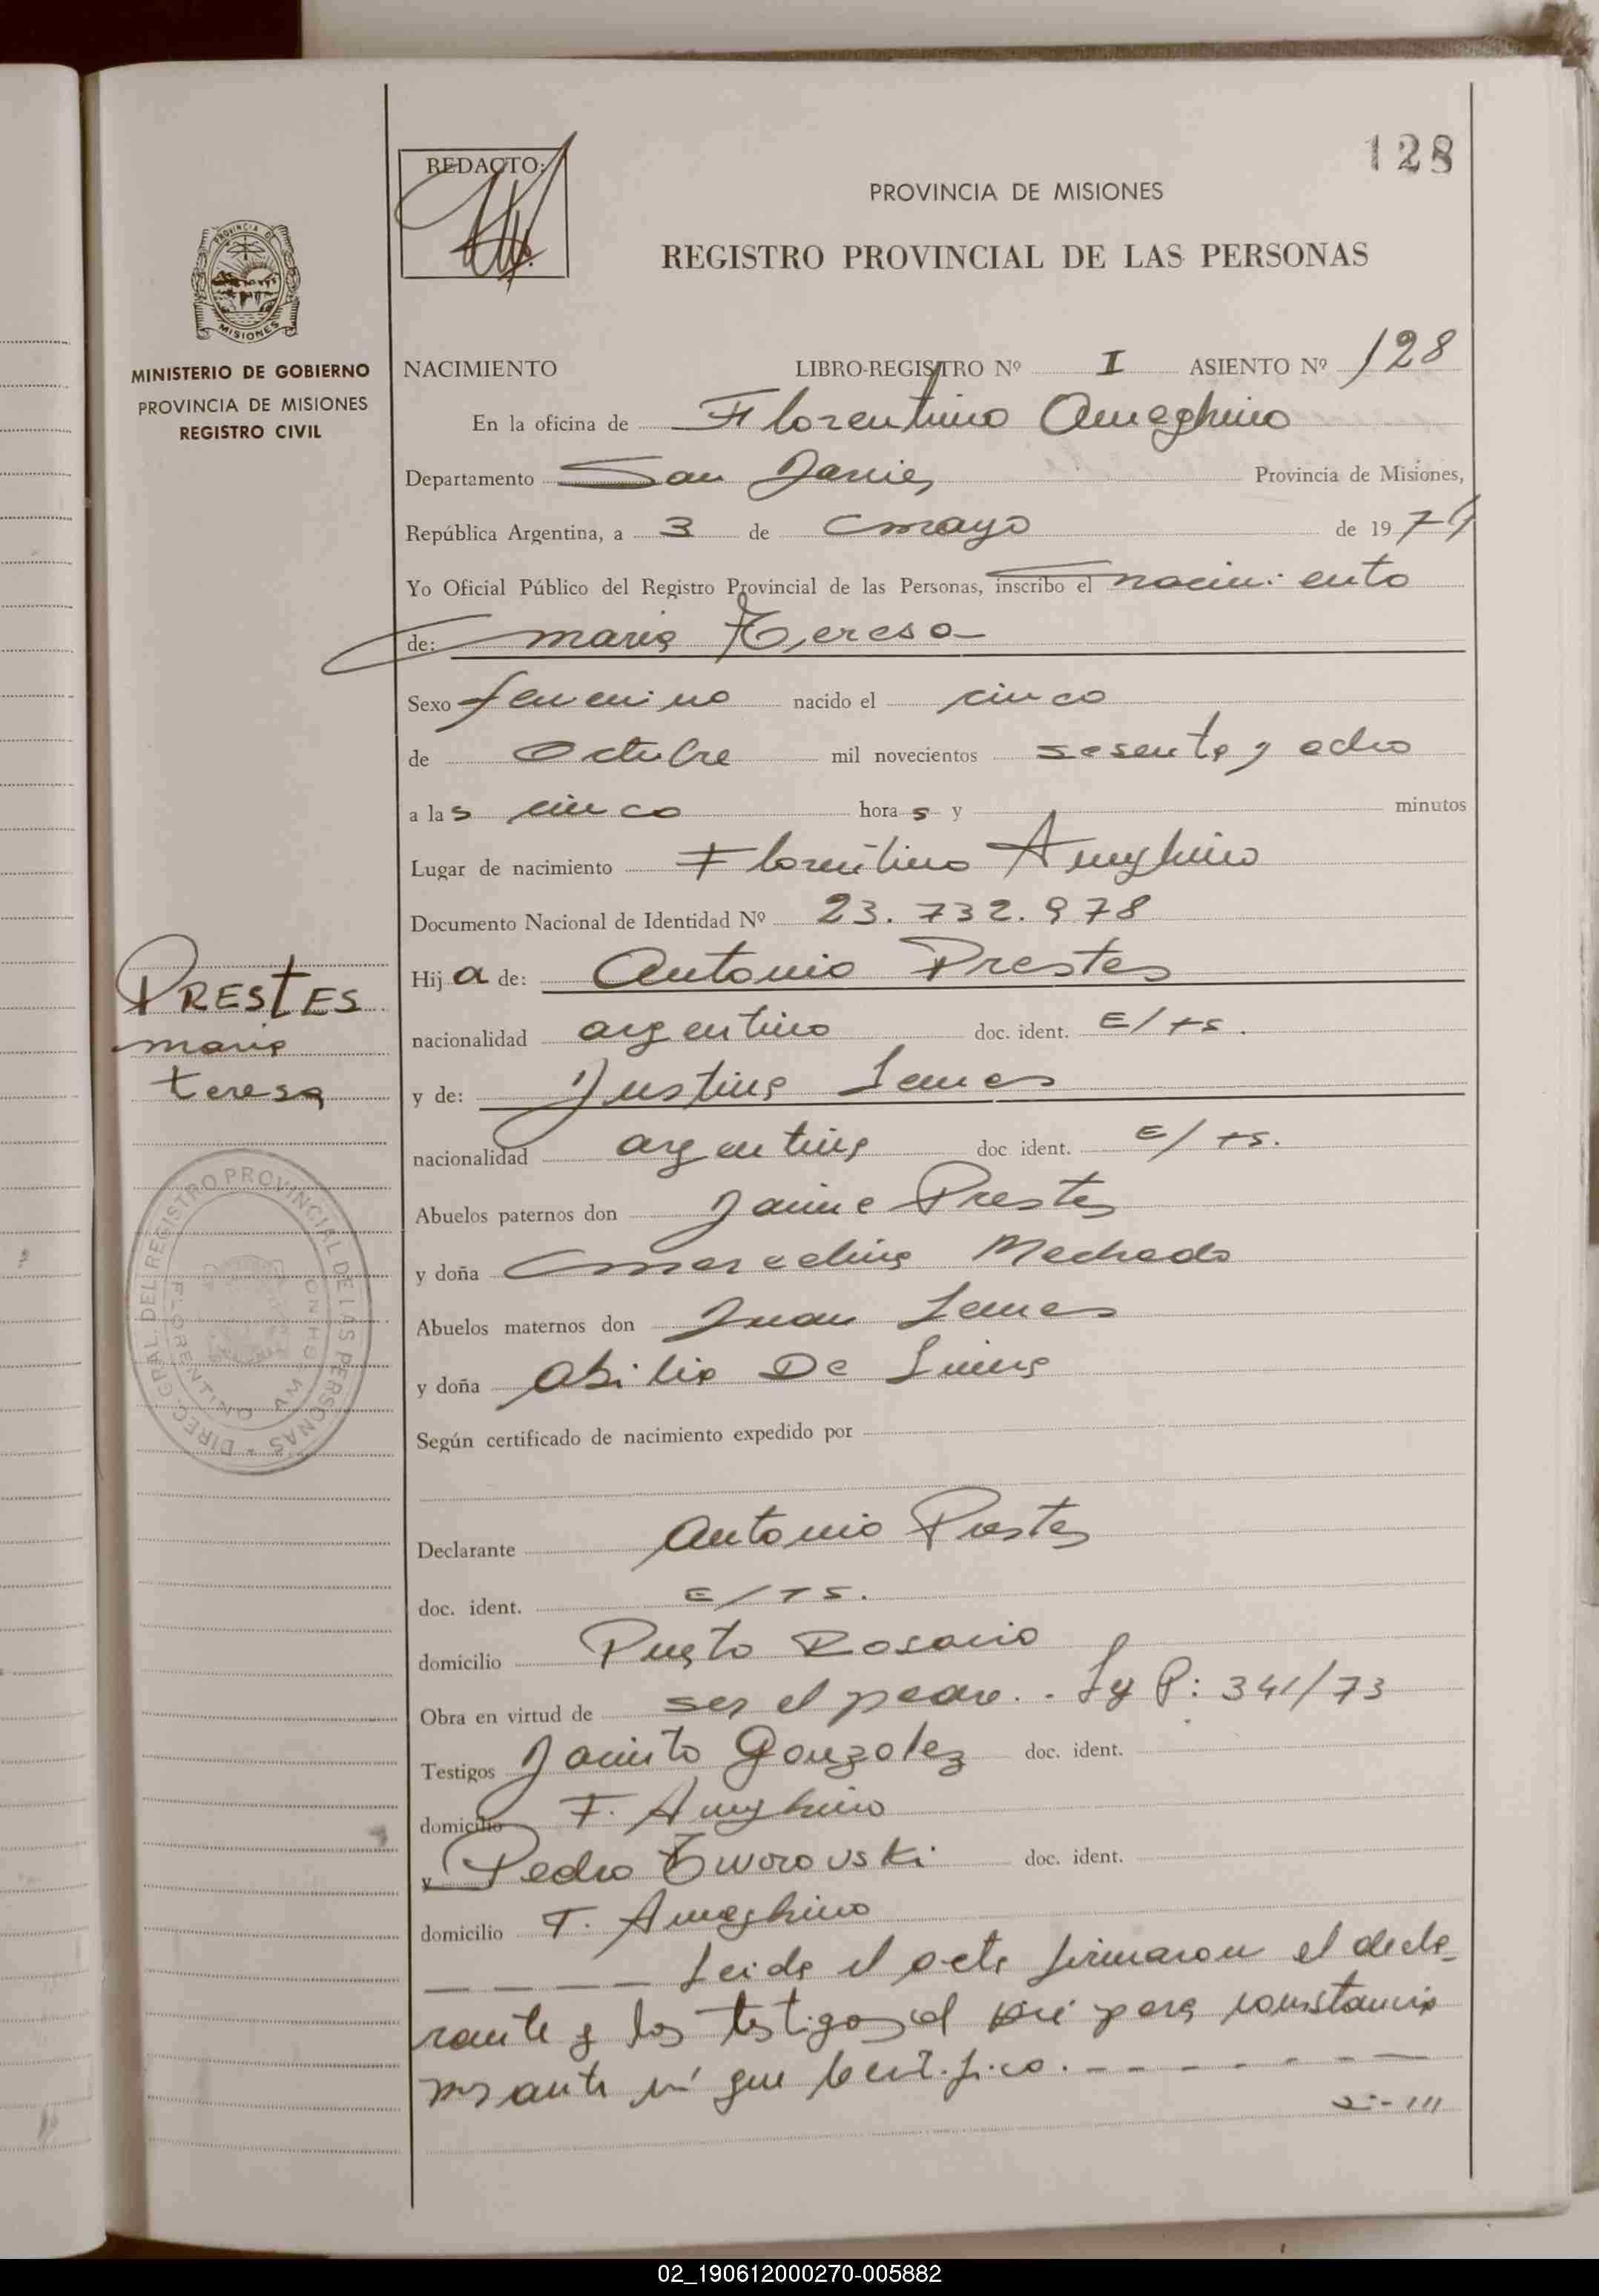 128
REDACTO:
PROVINCIA DE MISIONES
REGISTRO PROVINCIAL DE LAS PERSONAS
PROVINCIA DE MISIONES
MINISTERIO DE GOBIERNO
PROVINCIA DE MISIONES
REGISTRO CIVIL
NACIMIENTO LIBRO-REGISTRO Nº I ASIENTO Nº 128
En la oficina de Florentino Ameghino
Departamento San Javier Provincia de Misiones,
República Argentina, a 3 de mayo de 1974
Yo Oficial Público del Registro Provincial de las Personas, inscribo el nacimiento
de: maria Teresa
Sexo femenino nacido el cinco
de Octubre mil novecientos sesenta y ocho
a las cinco horas y minutos
Lugar de nacimiento Florentino Ameghino
Documento Nacional de Identidad Nº 23.732.978
Hija de: Antonio Prestes
PRESTES
maria
teresa
nacionalidad argentino doc. ident. E/ts.
y de: Justina Lemes
nacionalidad argentina doc ident. E/ts.
Abuelos paternos don Jaime Prestes
y doña marcelina Machado
Abuelos maternos don Juan Lemes
y doña Abilia De Lima
DIREC. GRAL. DEL REGISTRO PROVINCIAL DE LAS PERSONAS
FLORENTINO AMEGHINO
Según certificado de nacimiento expedido por
Declarante Antonio Prestes
doc. ident. E/TS.
domicilio Puerto Rosario
Obra en virtud de ser el padre. - Ly P: 341/73
Testigos Jacinto Gonzalez doc. ident.
domicilio F. Ameghino
y Pedro Tworovski doc. ident.
domicilio F. Ameghino
Leida el acta firmaron el decla-
rante y los testigos para constancia
ante mi que certifico.
02_190612000270-005882